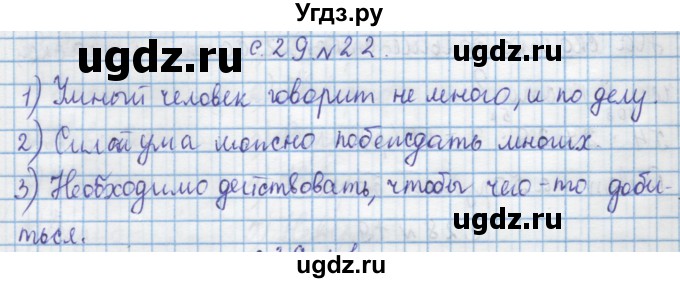 Угдз.ру
с. 29 № 22.
1) Умный человек говорит не много, и по делу.
2) Силой ума можно побеждать многих.
3) Необходимо действовать, чтобы чего-то доби-
ться.
ugdz.ru
ugdz.ru
ugdz.ru
ugdz.ru
ugdz.ru
ugdz.ru